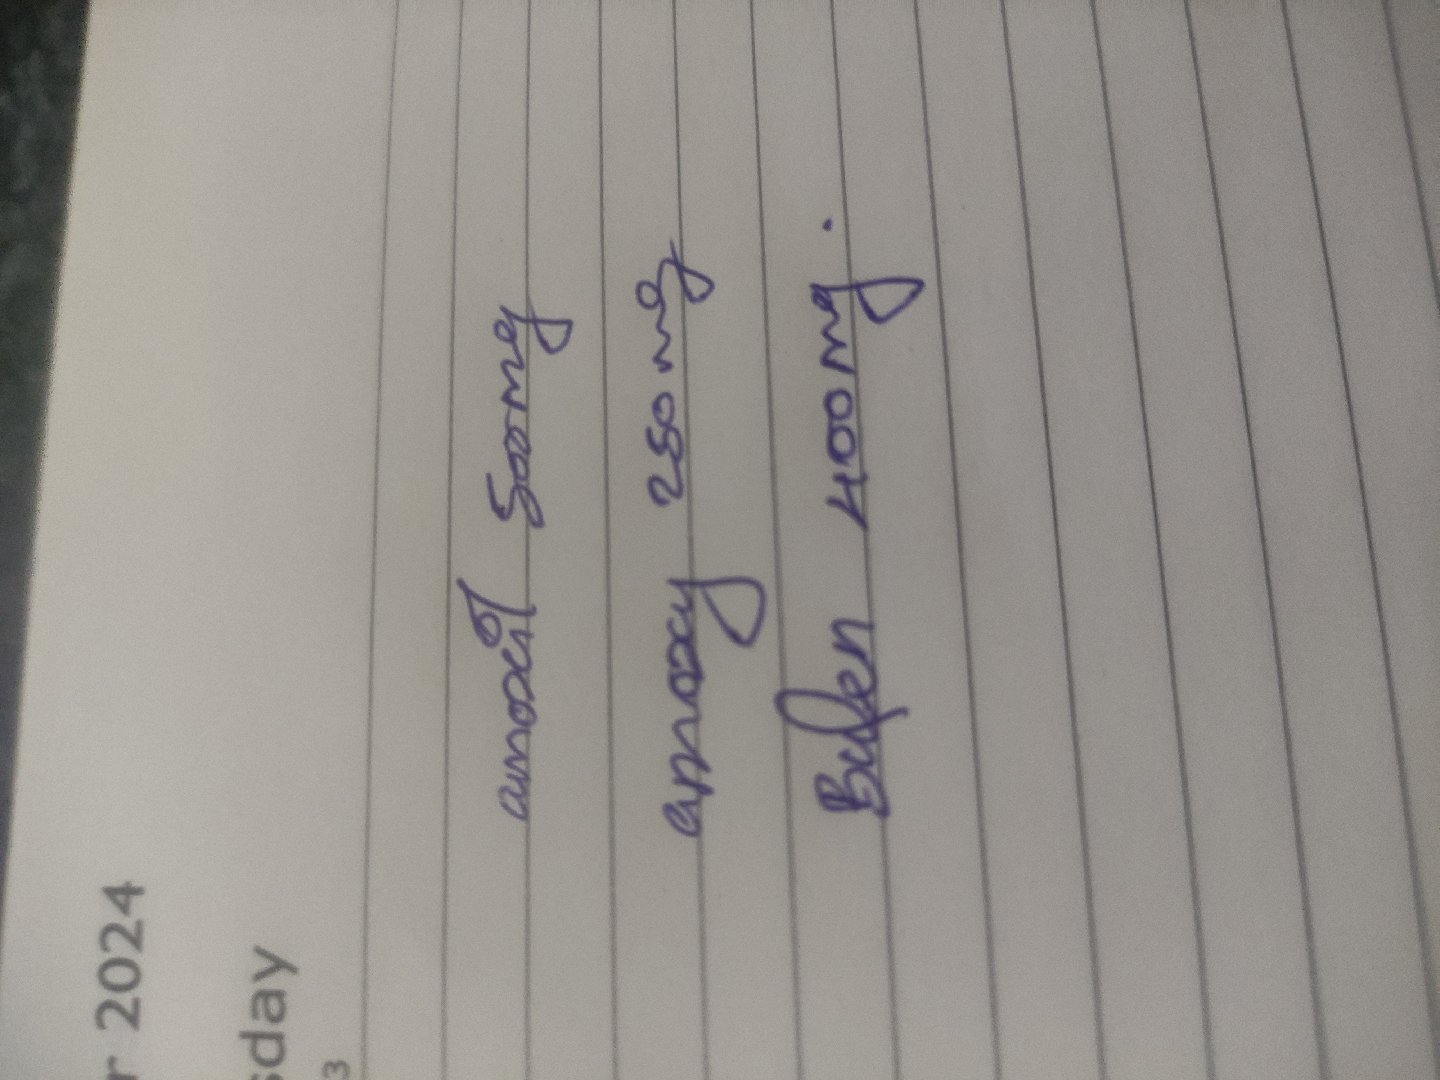 r 2024
sday
3
amoxil 500mg
amoxy 250mg
Bufen 400mg.